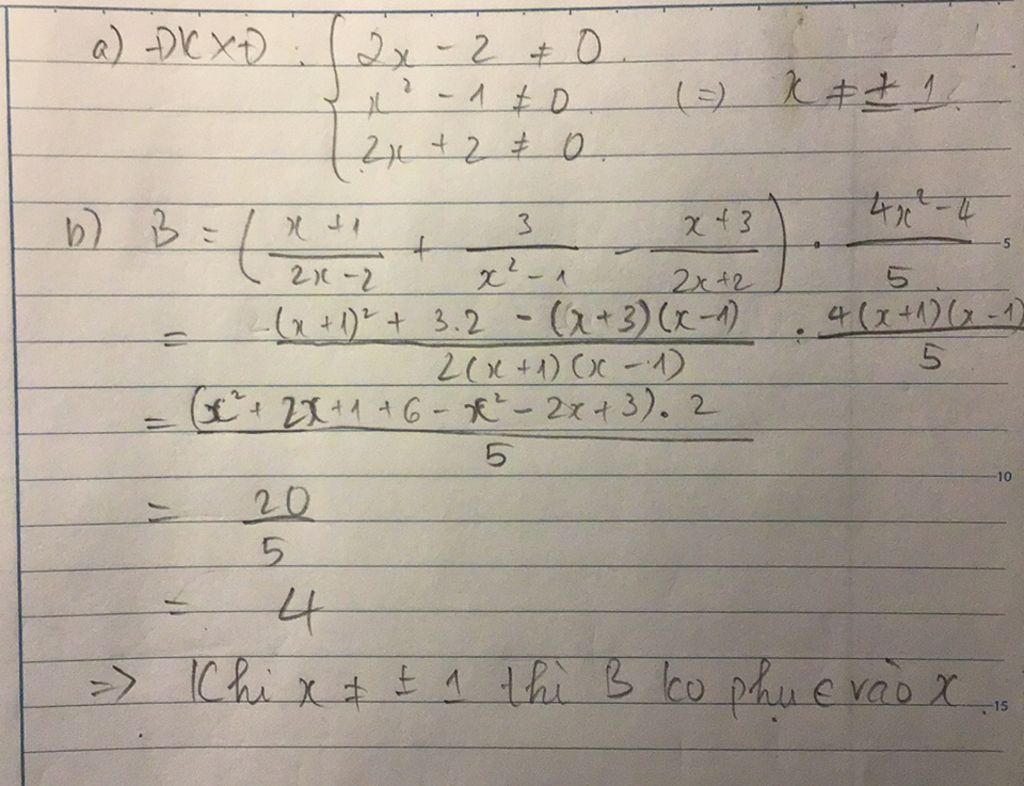 a) ĐKXĐ : { 2x - 2 ≠ 0.
x² - 1 ≠ 0 (=) x ≠ ± 1.
2x + 2 ≠ 0.
b) B = ( (x+1)/(2x-2) + 3/(x²-1) - (x+3)/(2x+2) ) . (4x²-4)/5
5
= ((x+1)² + 3.2 - (x+3)(x-1))/(2(x+1)(x-1)) . (4(x+1)(x-1))/5
= ((x² + 2x+1+6 - x² - 2x+3). 2)/5
10
= 20/5
= 4
=> Khi x ≠ ± 1 thì B ko phụ ∈ vào x.
15